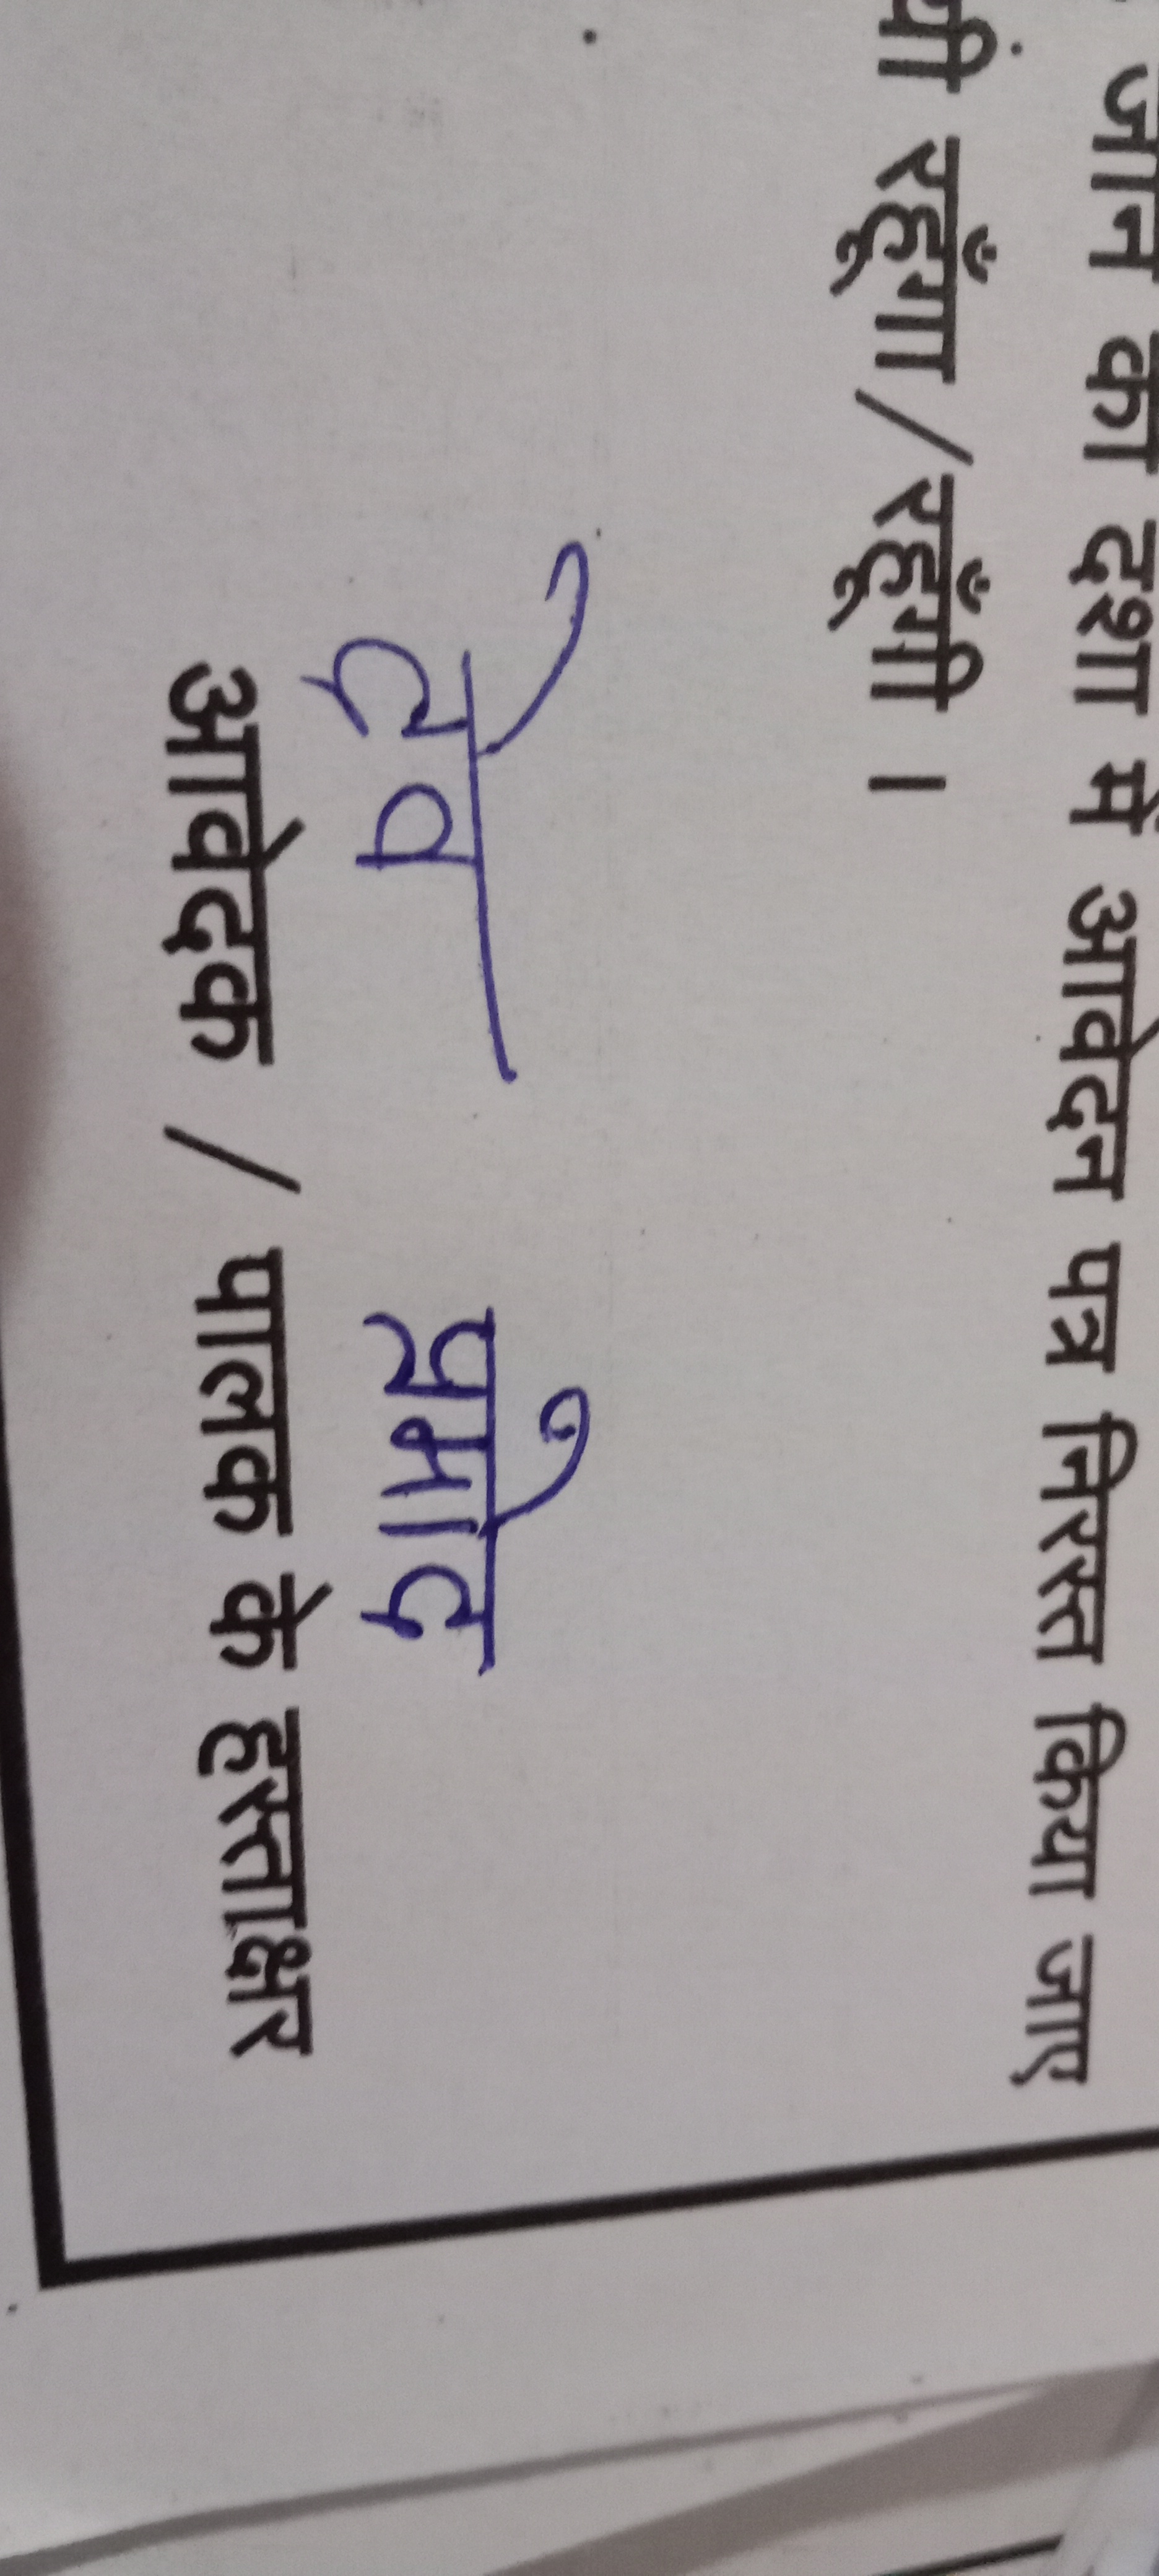 जाने की दशा में आवेदन पत्र निरस्त किया जाए
रहूँगा/रहूँगी ।
देव प्रमोद
आवेदक / पालक के हस्ताक्षर